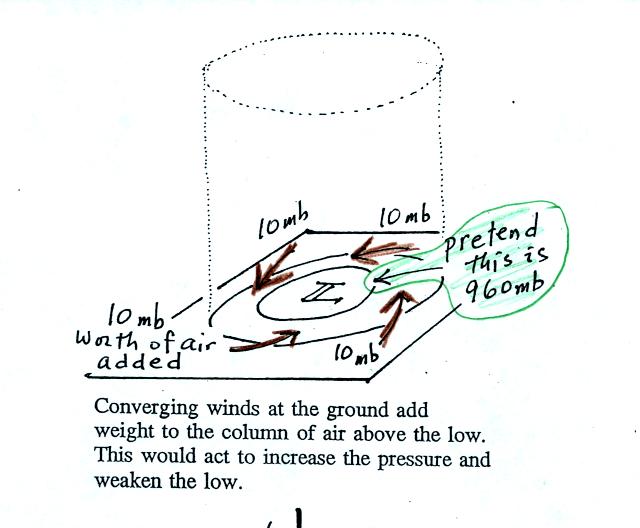 10 mb
10 mb
pretend
this is
960mb
L
10 mb
Worth of air
added
10 mb
Converging winds at the ground add
weight to the column of air above the low.
This would act to increase the pressure and
weaken the low.